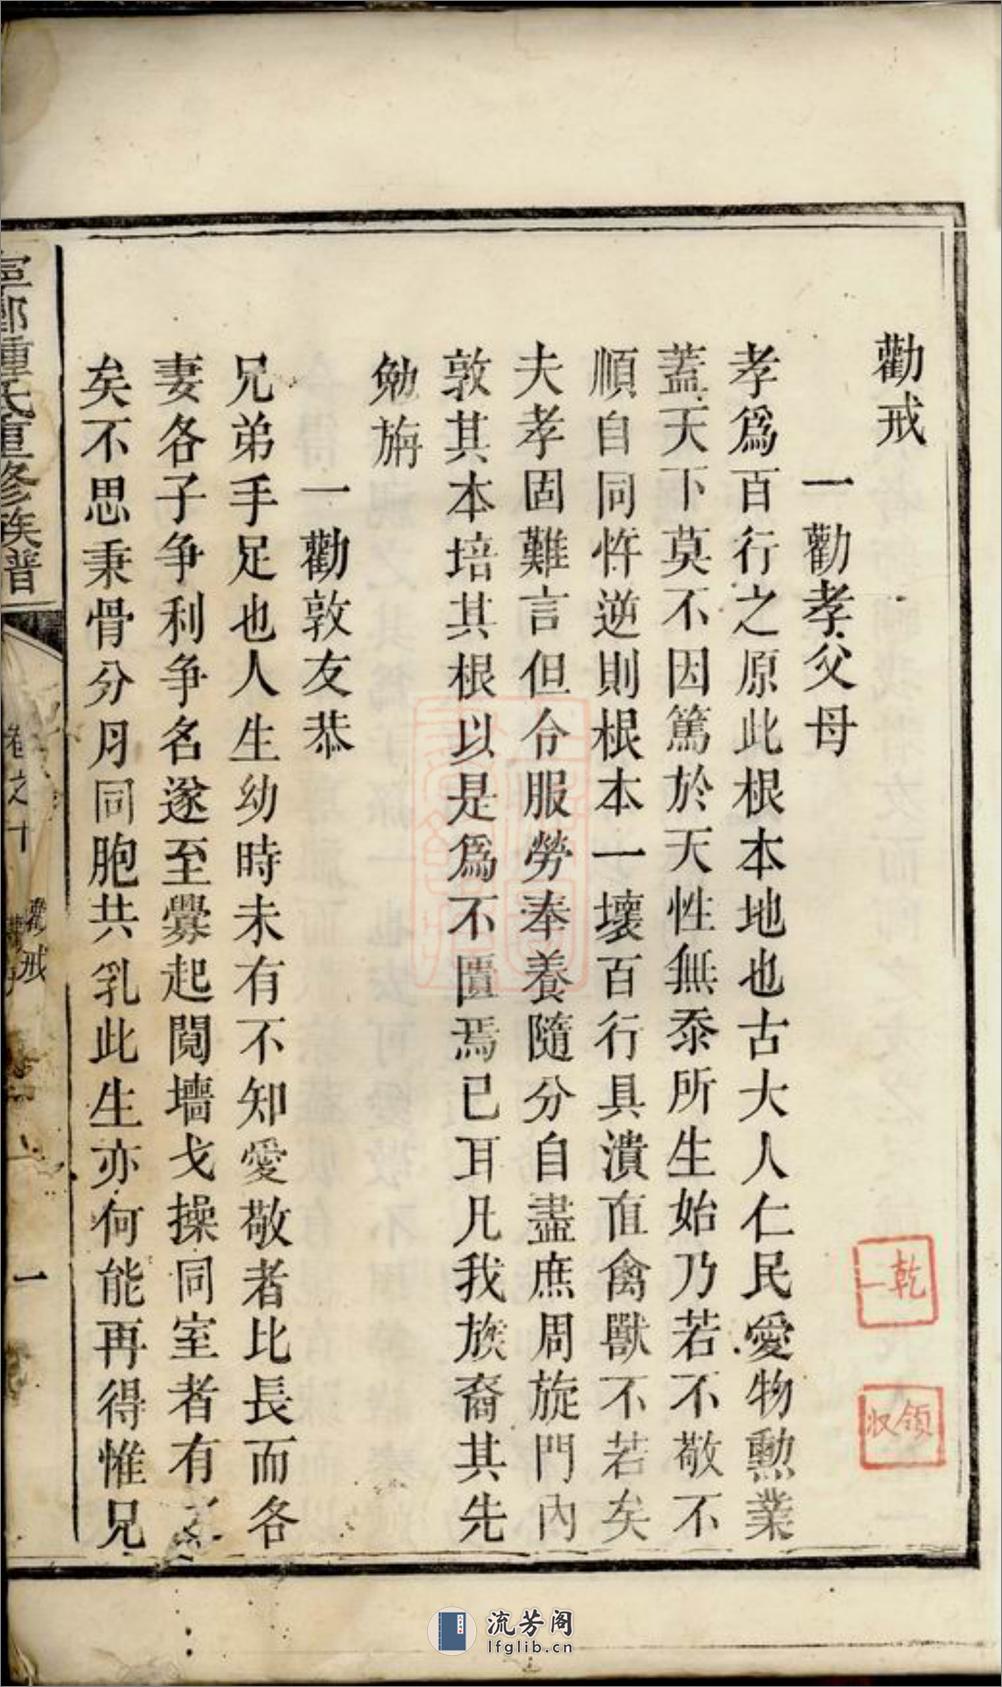 勸戒
一勸孝父母
孝爲百行之原此根本地也古大人仁民愛物勲業
蓋天下莫不因篤於天性無忝所生始乃若不敬不
順自同忤逆則根本一壞百行具潰直禽獸不若矣
夫孝固難言但令服勞奉養隨分自盡庶周旋門內
敦其本培其根以是爲不匱焉已耳凡我族裔其先
勉旃
一勸敦友恭
兄弟手足也人生幼時未有不知愛敬者比長而各
妻各子争利争名遂至釁起鬩墻戈操同室者有
矣不思秉骨分月同胞共乳此生亦何能再得惟兄
寧鄉鍾氏重修族譜
卷之十
勸戒
一
乾一
領收
流芳阁
lfglib.cn